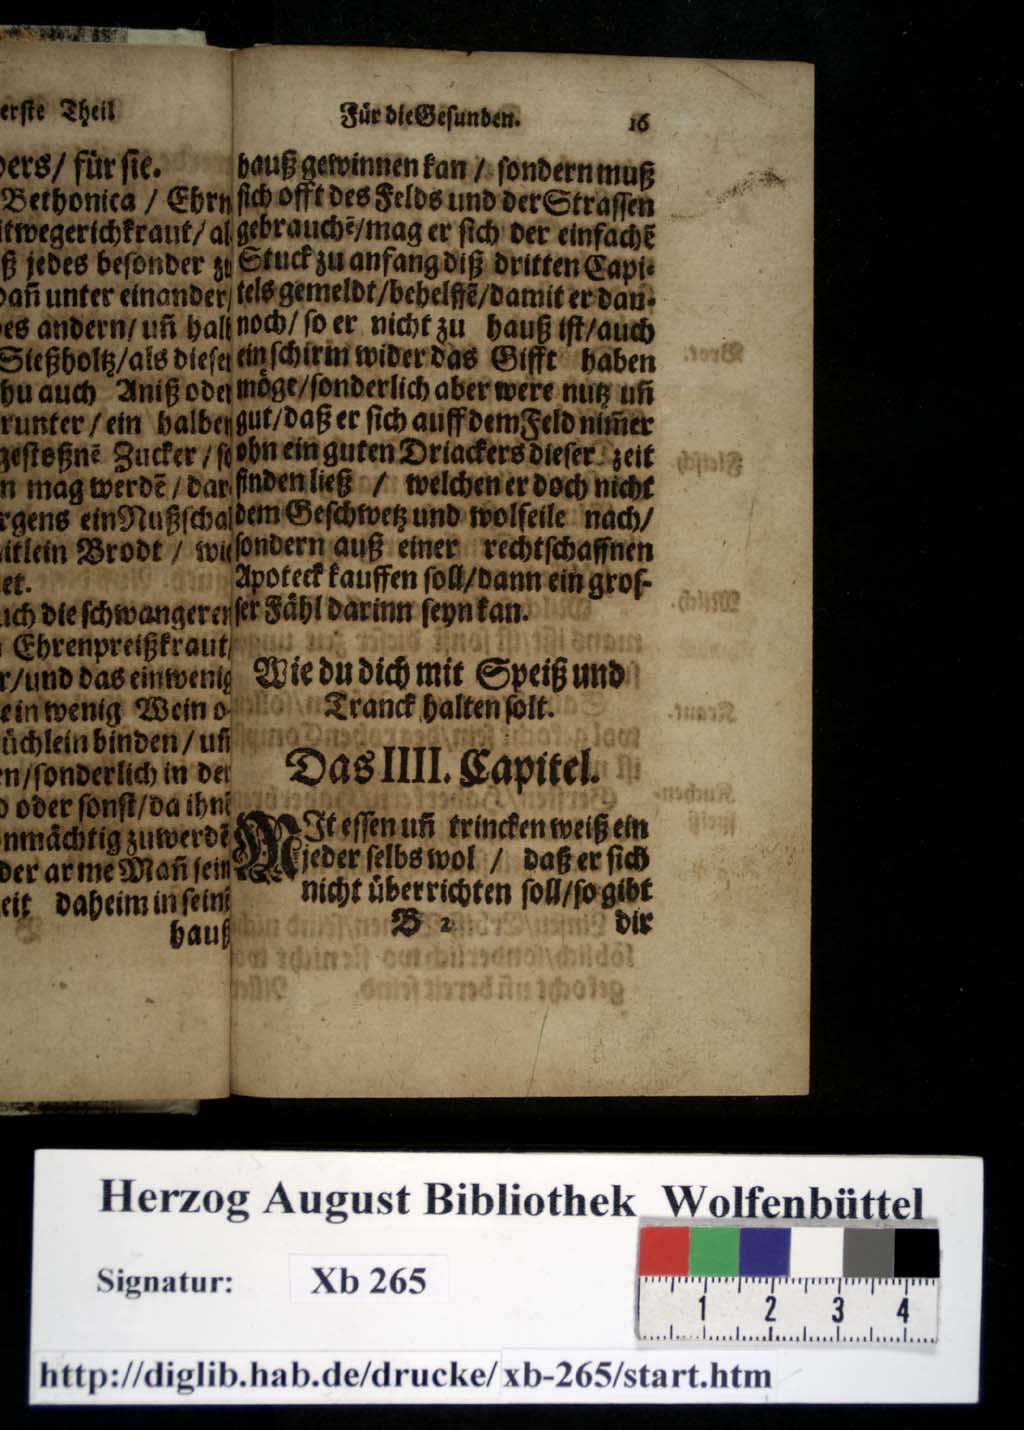 erste Theil
ders/ für sie.
Bethonica / Ehrn
itwegerichkraut/ al
ß jedes besonder zu
dañ unter einander/
es andern/ uñ halt
Sießholtz/als dieser
hu auch Aniß oder
runter/ ein halben
gestoßnẽ Zucker / so
n mag werdẽ / dar
rgens ein Nußschal
itlein Brodt / wie
et.
uch die schwangeren
Ehrenpreißkraut/
r/und das ein wenig
ein wenig Wein o-
üchlein binden / uñ
en/sonderlich in der
oder sonst/da ihnẽ
nmächtig zuwerdẽ
der arme Mañ sein
eit daheim in seinẽ
hauß
Für die Gesunden. 16
hauß gewinnen kan / sondern muß
sich offt des Felds und der Strassen
gebrauchẽ/mag er sich der einfachẽ
Stuck zu anfang diß dritten Capi-
tels gemeldt/behelffẽ/damit er dan-
noch/ so er nicht zu hauß ist/auch
ein schirm wider das Gifft haben
möge/sonderlich aber were nutz uñ
gut/daß er sich auff dem Feld nim̃er
ohn ein guten Driackers dieser zeit
finden ließ / welchen er doch nicht
dem Geschwetz und wolfeile nach/
sondern auß einer rechtschaffnen
Apoteck kauffen soll/dann ein gros-
ser Fähl darinn seyn kan.
Wie du dich mit Speiß und
Tranck halten solt.
Das IIII. Capitel.
MIt essen uñ trincken weiß ein
jeder selbs wol / daß er sich
nicht überrichten soll/so gibt
B 2 dir
Herzog August Bibliothek Wolfenbüttel
Signatur: Xb 265
1 2 3 4
http://diglib.hab.de/drucke/xb-265/start.htm